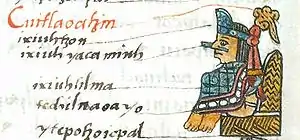 Cuitlaoatzin
ixiuhtzon
ixiuh yaca miuh
ixiuhtilma
tēchilnaoa yo
ytepotzoicpal